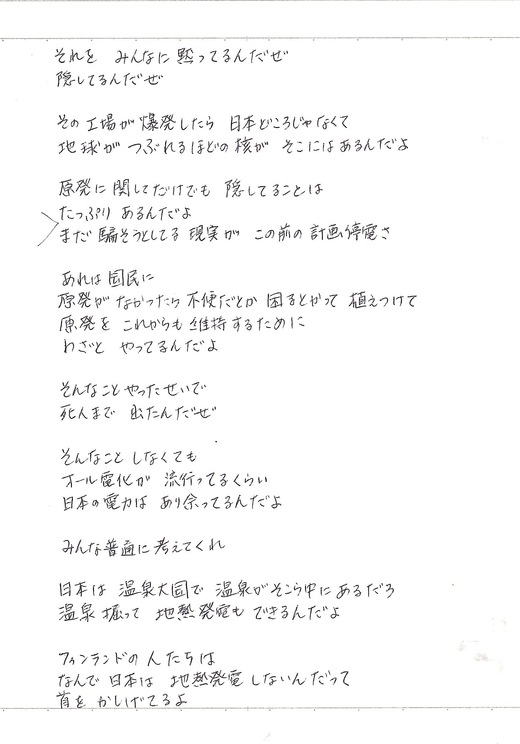 それを みんなに 黙ってるんだぜ
隠してるんだぜ
その工場が 爆発したら 日本どころじゃなくて
地球が つぶれるほどの核が そこにはあるんだよ
原発に 関してだけでも 隠してることは
たっぷり あるんだよ
まだ 騙そうとしてる 現実が この前の 計画停電さ
あれは 国民に
原発が なかったら 不便だとか 困るとかって 植えつけて
原発を これからも 維持するために
わざと やってるんだよ
そんなこと やったせいで
死人まで 出たんだぜ
そんなこと しなくても
オール電化が 流行ってるくらい
日本の電力は あり余ってるんだよ
みんな普通に 考えてくれ
日本は 温泉大国で 温泉がそこら中に あるだろ
温泉 掘って 地熱発電も できるんだよ
フィンランドの 人たちは
なんで 日本は 地熱発電 しないんだって
首を かしげてるよ